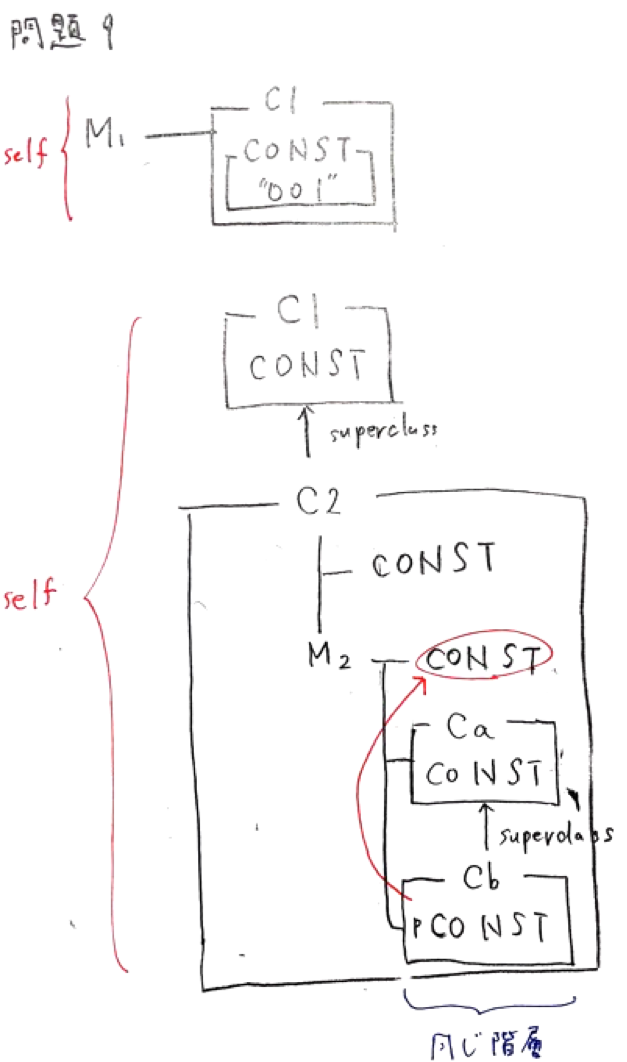 問題 9
C1
self
M1
CONST
"001"
C1
CONST
superclass
C2
CONST
self
M2
CONST
Ca
CONST
superclass
Cb
P CONST
同じ階層